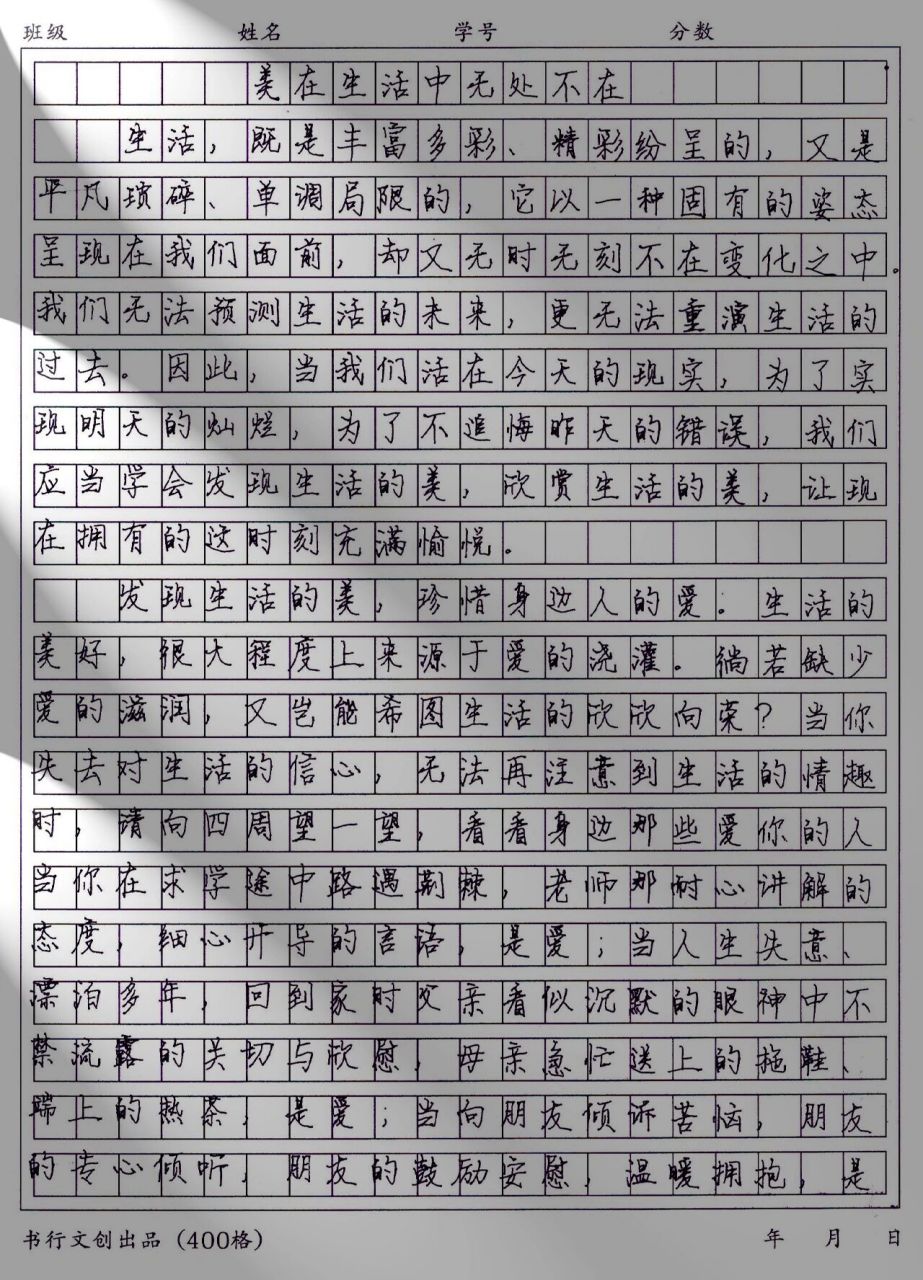 班级 姓名 学号 分数
美在生活中无处不在
生活，既是丰富多彩、精彩纷呈的，又是
平凡琐碎、单调局限的，它以一种固有的姿态
呈现在我们面前，却又无时无刻不在变化之中。
我们无法预测生活的未来，更无法重演生活的
过去。因此，当我们活在今天的现实，为了实
现明天的灿烂，为了不追悔昨天的错误，我们
应当学会发现生活的美，欣赏生活的美，让现
在拥有的这时刻充满愉悦。
发现生活的美，珍惜身边人的爱。生活的
美好，很大程度上来源于爱的浇灌。倘若缺少
爱的滋润，又岂能希图生活的欣欣向荣？当你
失去对生活的信心，无法再注意到生活的情趣
时，请向四周望一望，看看身边那些爱你的人
当你在求学途中路遇荆棘，老师那耐心讲解的
态度，细心开导的言语，是爱；当人生失意、
漂泊多年，回到家时父亲看似沉默的眼神中不
禁流露的关切与欣慰，母亲急忙送上的拖鞋、
端上的热茶，是爱；当向朋友倾诉苦恼，朋友
的专心倾听，朋友的鼓励安慰，温暖拥抱，是
书行文创出品（400格） 年 月 日